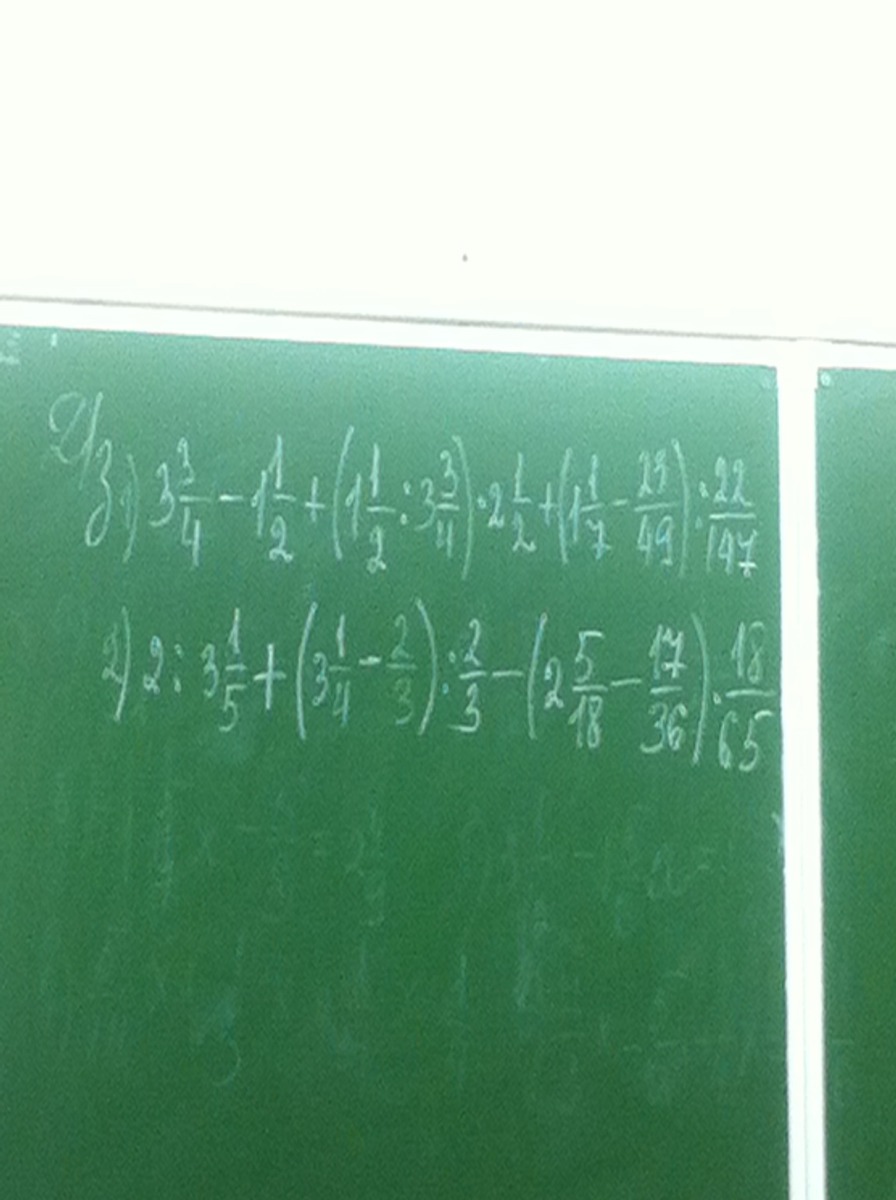 Д/з 1) 3 3/4 − 1 1/2 + (1 1/2 : 3 3/4) · 2 1/2 + (1 1/7 − 23/49) : 22/147
2) 2 : 3 1/5 + (3 1/4 − 2/3) : 2/3 − (2 5/18 − 17/36) · 18/65